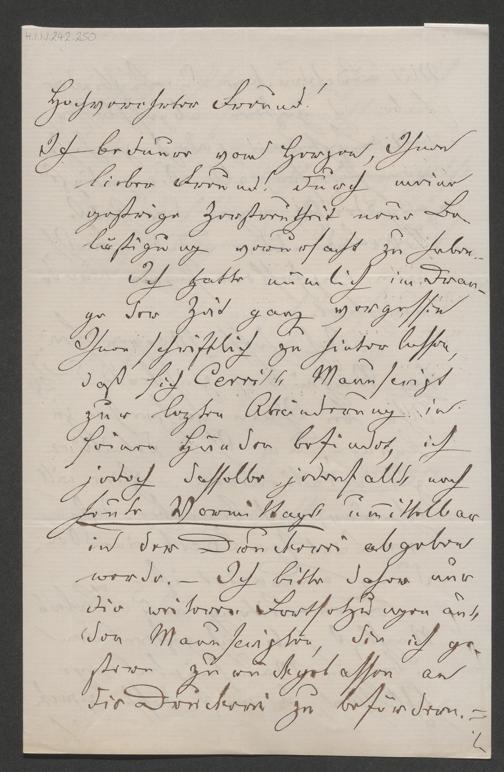 H.I.N.242.250
Hochverehrter Freund!
Ich bedaure vom Herzen, Ihnen
lieber Freund! durch meine
gestrige Zerstreutheit neue Be-
lästigung verursacht zu haben.
Ich hatte nämlich im Dran-
ge der Zeit ganz vergessen
Ihnen schriftlich zu hinterlassen,
daß sich Cerri's Manuscript
zur letzten Abänderung in
seinen Händen befindet, ich
jedoch dasselbe jedenfalls noch
heute Vormittags unmittelbar
in der Druckerei abgeben
werde. – Ich bitte daher nur
die weiteren Fortsetzungen aus
den Manuscripten, die ich ge-
stern zurückgelassen an
die Druckerei zu befördern. =